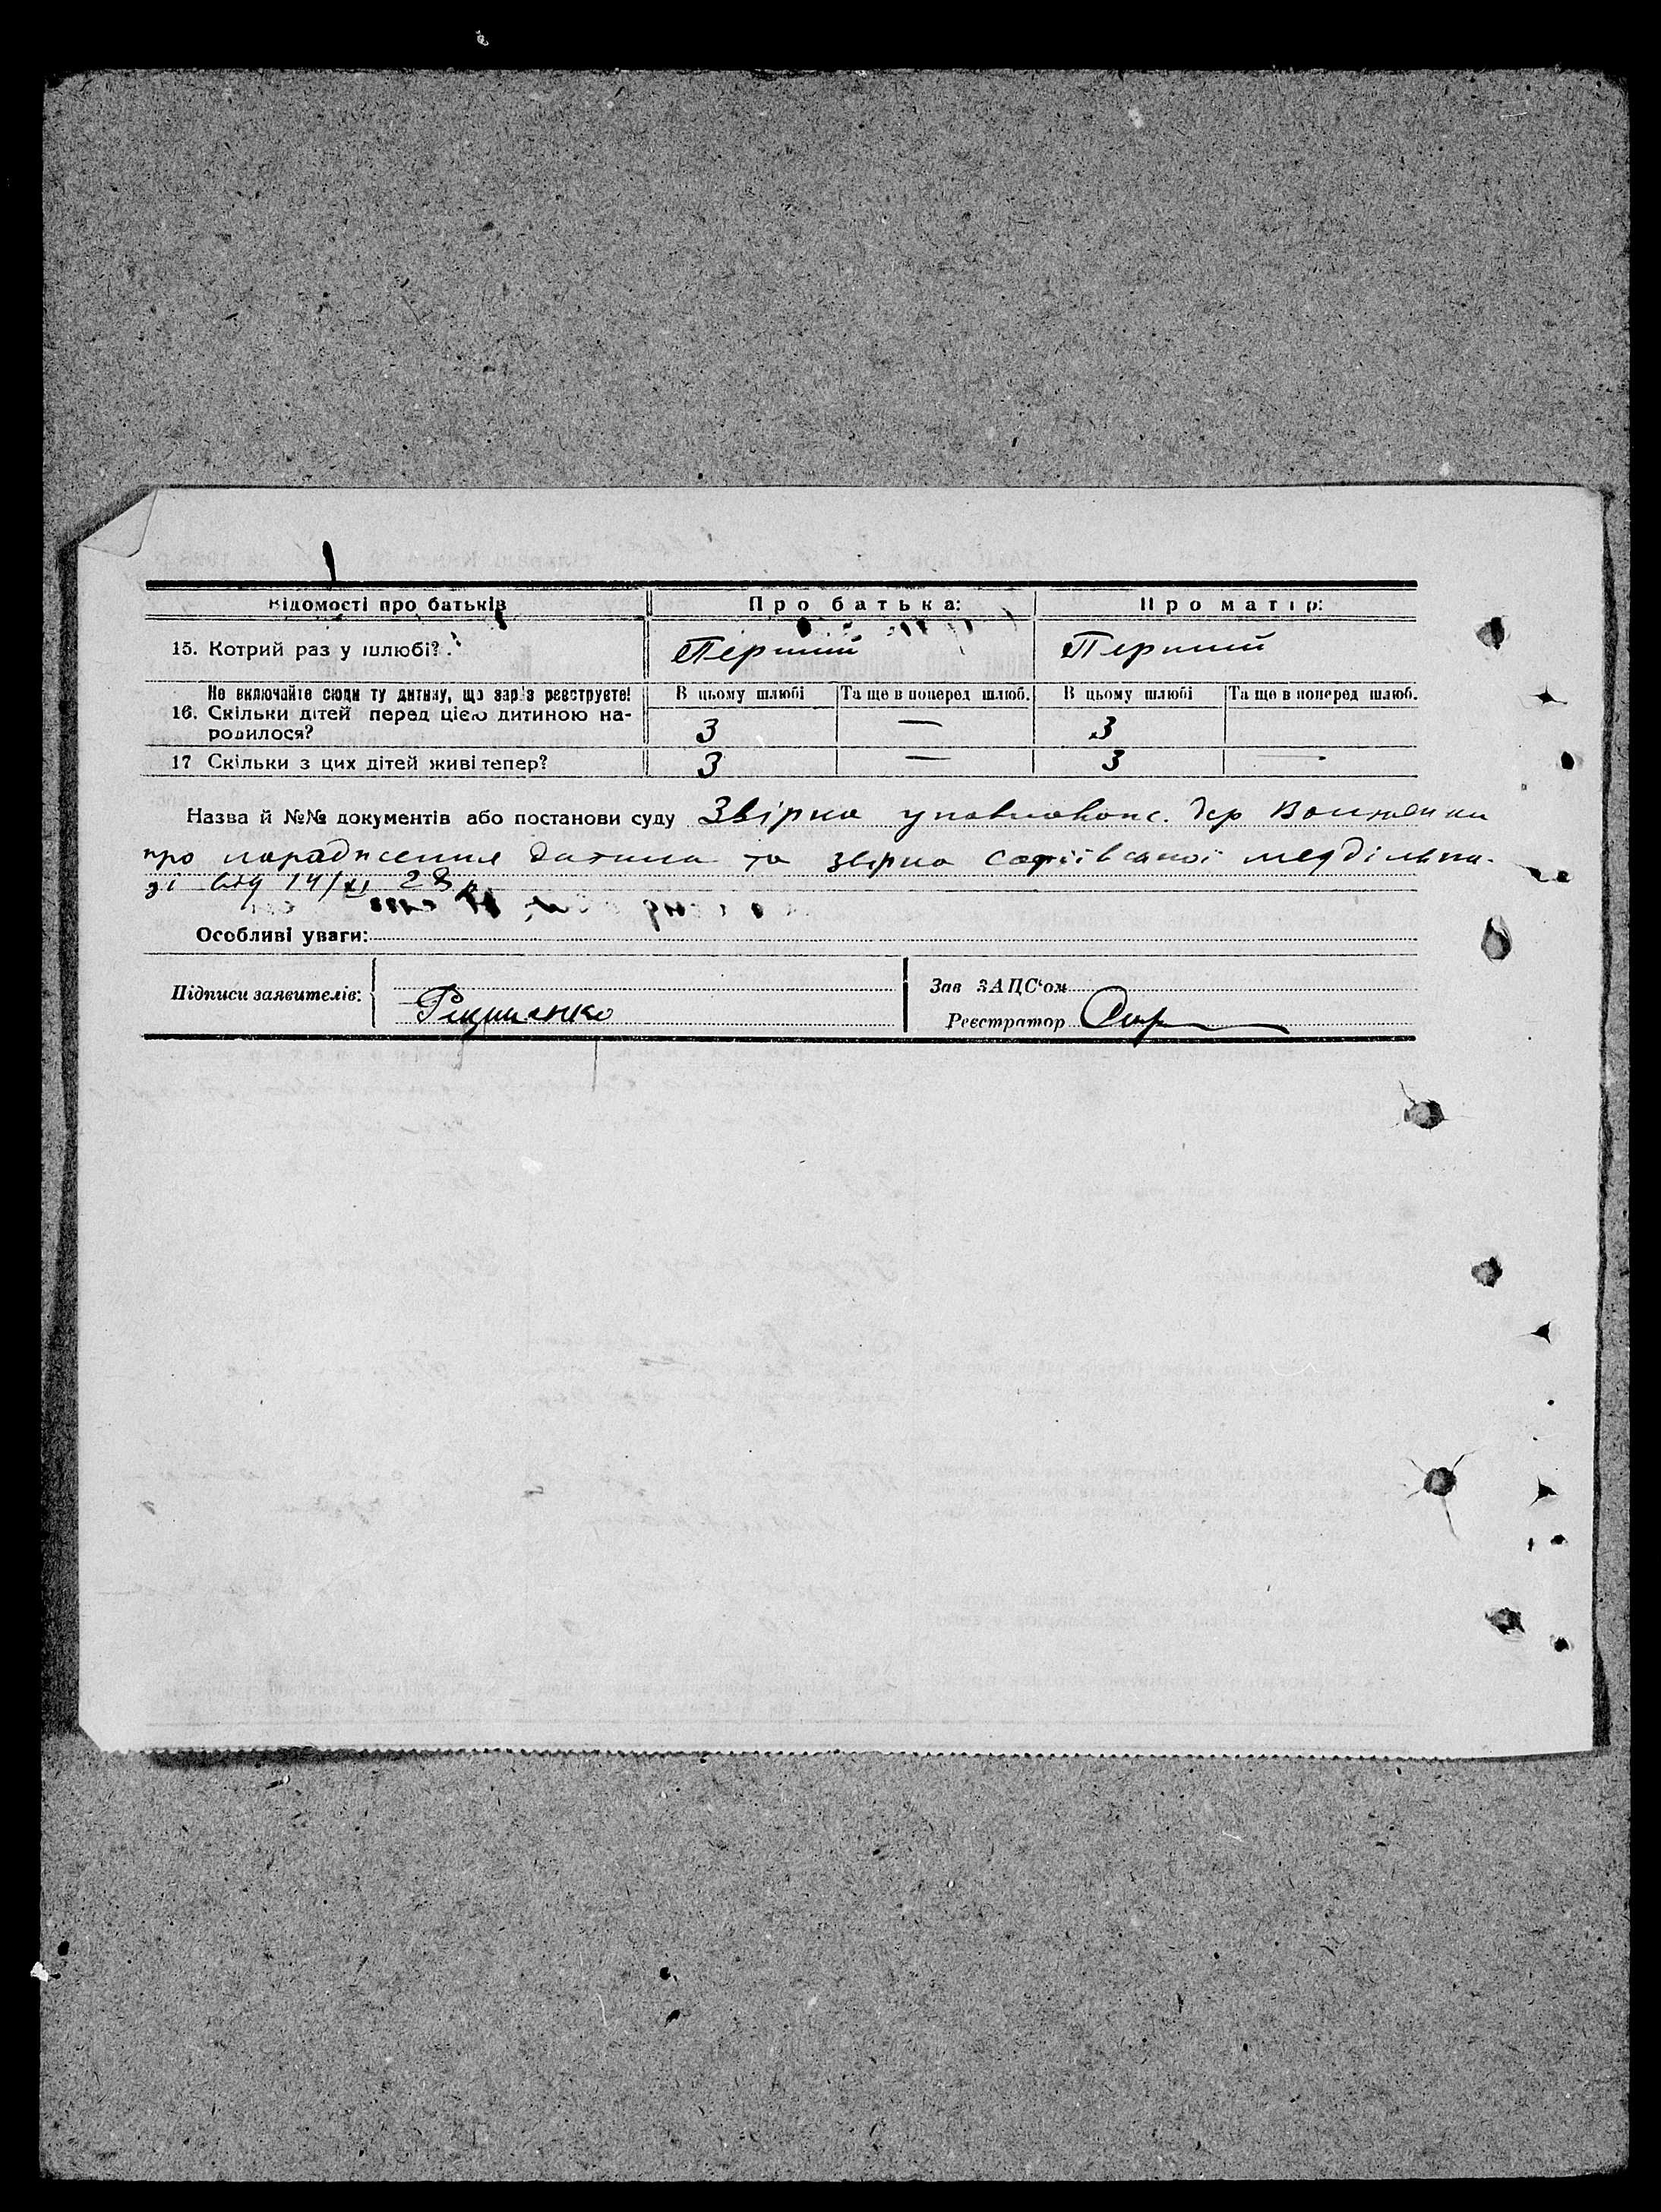 Відомості про батьків Про батька: Про матір:
15. Котрий раз у шлюбі? Перший Перший
Не включайте сюди ту дитину, що зараз реєструєте! В цьому шлюбі Та ще в поперед шлюб. В цьому шлюбі Та ще в поперед шлюб.
16. Скільки дітей перед цією дитиною на-
родилося? 3 — 3
17 Скільки з цих дітей живі тепер? 3 — 3 —
Назва й №№ документів або постанови суду Звірка уповновонс. дер
про народження дитини та звірка софіївської меддільни-
зі від 14/XI 28 р
Особливі уваги:
Підписи заявителів: Зав ЗАЦС‘ом
Реєстратор